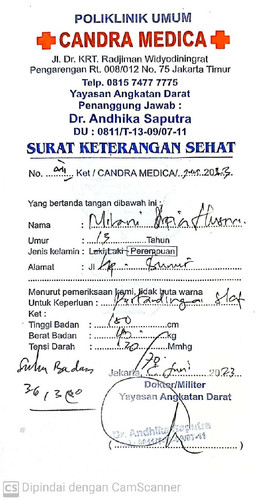 POLIKLINIK UMUM
CANDRA MEDICA
Jl. Dr. KRT. Radjiman Widyodiningrat
Pengarengan Rt. 008/012 No. 75 Jakarta Timur
Telp. 0815 7477 7775
Yayasan Angkatan Darat
Penanggung Jawab :
Dr. Andhika Saputra
DU : 0811/T-13-09/07-11
SURAT KETERANGAN SEHAT
No. Ket / CANDRA MEDICA/ 2023
Yang bertanda tangan dibawah ini :
Nama :
Umur : 13 Tahun
Jenis kelamin : Leki/Laki - Perempuan
Alamat : Jl
Menurut pemeriksaan kami, tidak buta warna
Untuk Keperluan : Pertandingan
Ket :
Tinggi Badan : 150 cm
Berat Badan : kg
Tensi Darah : Mmhg
Suhu Badan
36,3
Jakarta, Juni 2023
Dokter/Militer
Yayasan Angkatan Darat
Dr. Andhika Saputra
CS Dipindai dengan CamScanner